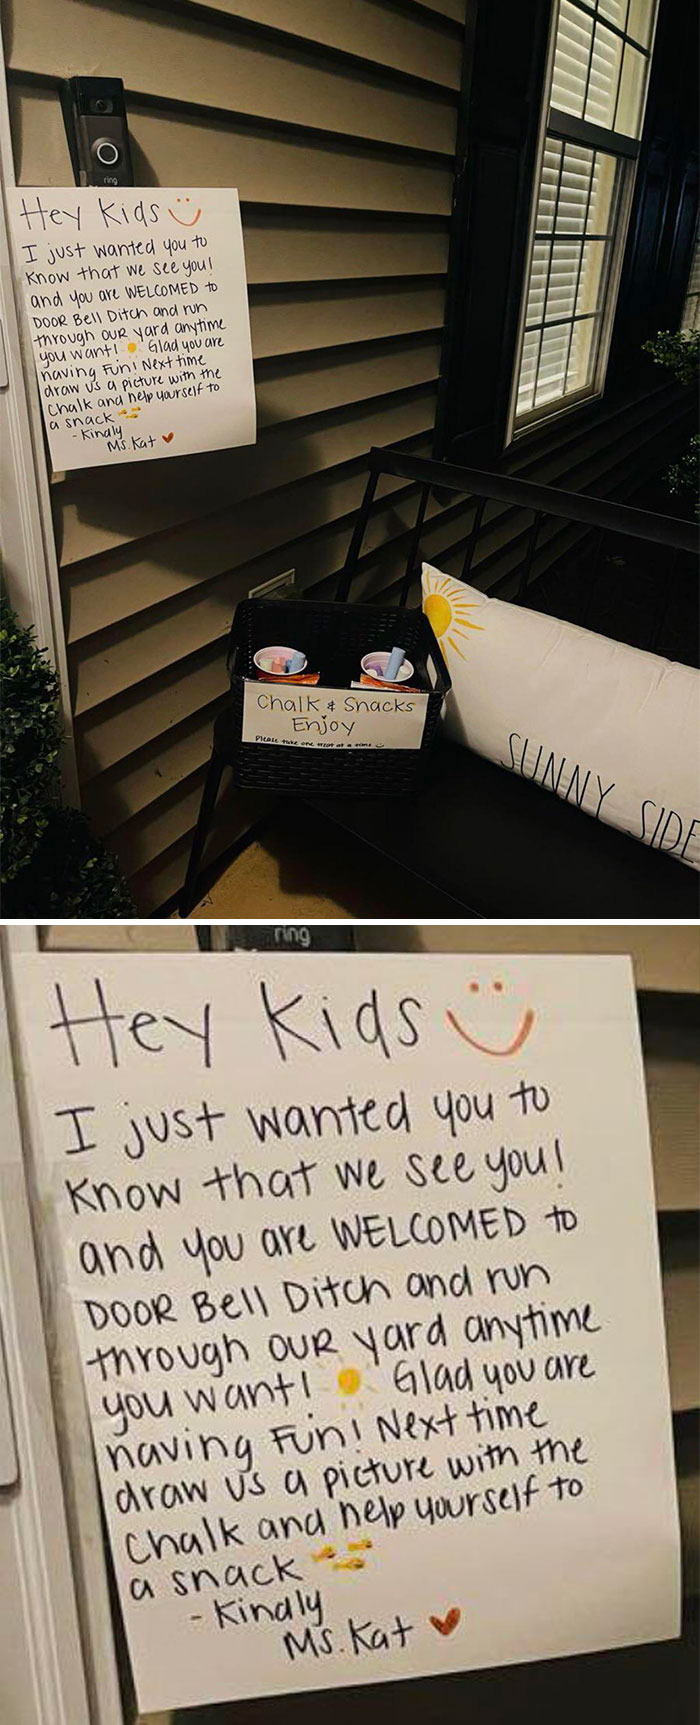 ring
Hey Kids
I just wanted you to
know that we see you!
and you are WELCOMED to
DOOR Bell Ditch and run
through OUR yard anytime
you want! Glad you are
having Fun! Next time
draw us a picture with the
Chalk and help yourself to
a snack
- Kindly
Ms. Kat
Chalk & Snacks
Enjoy
Please take one treat at a time
SUNNY SIDE
ring
Hey Kids
I just wanted you to
know that we see you!
and you are WELCOMED to
DOOR Bell Ditch and run
through OUR yard anytime
you want! Glad you are
having Fun! Next time
draw us a picture with the
Chalk and help yourself to
a snack
- Kindly
Ms. Kat